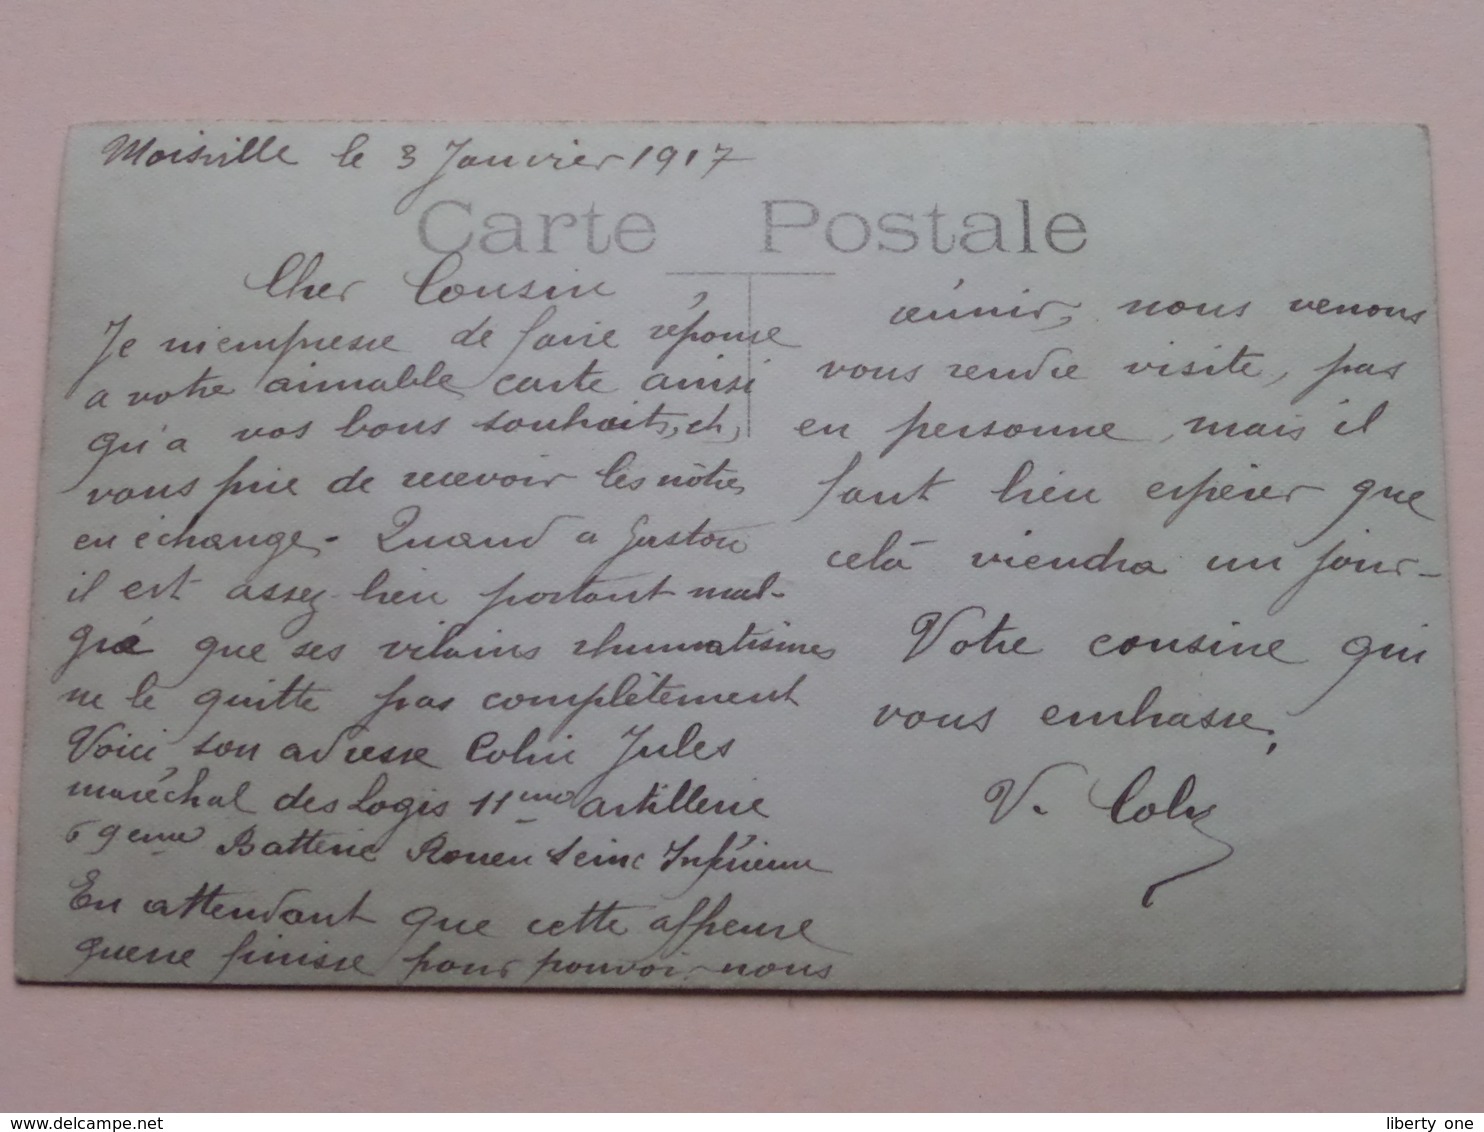 Moisville le 3 Janvier 1917
Carte Postale
Cher Cousin
Je m'empresse de faire réponse
a votre aimable carte ainsi
qu'a vos bons souhaits, et,
vous prie de recevoir les nôtres
en échange. Quand a Gaston
il est assez bien portant mal-
gré que ses vilains rhumatismes
ne le quitte pas complètement
Voici son adresse Jules
maréchal des Logis 11eme artillerie
69eme Batterie Rouen Seine Inférieure
En attendant que cette affreuse
guerre finisse pour pouvoir nous
réunir, nous venons
vous rendre visite, pas
en personne, mais il
faut bien espérer que
celà viendra un jour-
Votre cousine qui
vous embrasse,
V.
liberty one